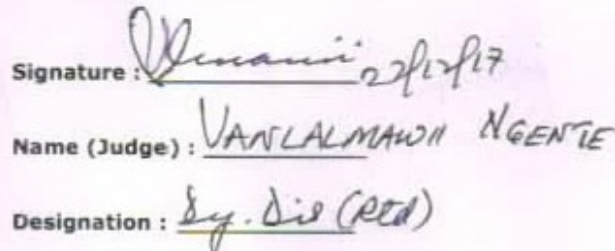 Signature : 22/12/17
Name (Judge) : VANLALMAWII NGENTE
Designation : Dy. Dir (Rtd)